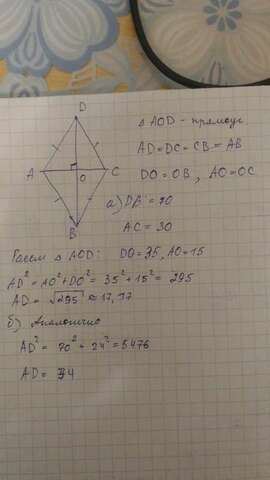 D
Δ AOD - прямоуг
AD=DC=CB=AB
A O C
DO=OB, AO=OC
B
a) DB=70
AC=30
Рассм Δ AOD: DO=35, AO=15
AD²=AO²+DO²=35²+15²=295
AD=√295≈17,17
б) Аналогично
AD²=70²+24²=5476
AD=74